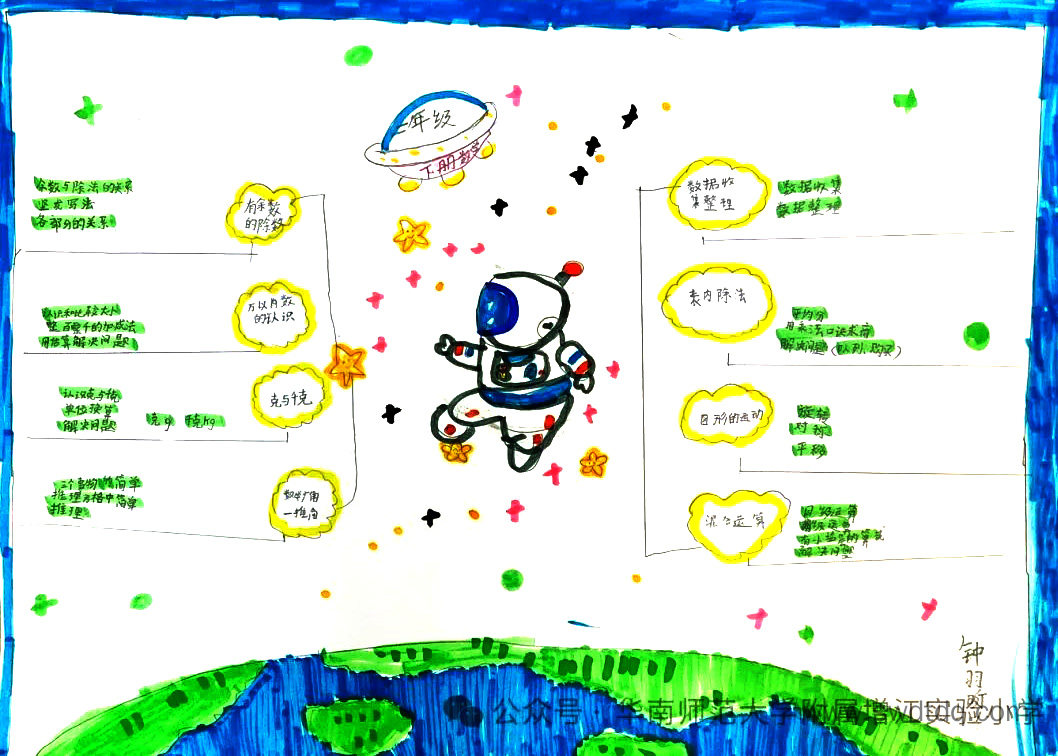 二年级
下册数学
有余数
的除法
余数与除法的关系
竖式写法
各部分的关系
万以内数
的认识
认识和比较大小
解决问题
克与千克
认识克与千克
单位换算
解决问题
克g 千克kg
数学广角
—推理
三个事物的简单
推理方格中简单
推理
数据收
集整理
数据收集
数据整理
表内除法
平均分
用乘法口诀求商
解决问题
图形的运动
旋转
对称
平移
混合运算
同级运算
有小括号的算式
解决问题
钟羽
公众号·华南师范大学附属增江实验小学